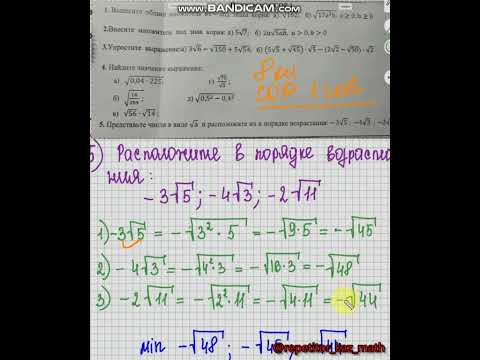 WWW.BANDICAM.COM
1. Вынесите общий множитель из - под знака корня: а) √162, б) √17x²b, x ≥ 0, b ≥ 0
2.Внесите множитель под знак корня: а) 5√7; б) 2n√5an, n > 0, b > 0
3.Упростите выражение: а) 3√6 − √150 + 5√54; б) (5√5 + √45) · √5 − (2√2 − √50) · √2
4. Найдите значение выражения:
а) √0,04 · 225;
б)
в) √56 · √14;
5. Представьте числа в виде √a и расположите их в порядке возрастания: −3√5; −4√3; −2
8 кл
СОР 1 четв
5) Расположите в порядке возраста
ния:
−3√5; −4√3; −2√11
1) −3√5 = −√3²·5 = −√9·5 = −√45
2) −4√3 = −√4²·3 = −√16·3 = −√48
3) −2√11 = −√2²·11 = −√4·11 = −√44
min −√48; −√45;
@repetitor_kaz_math